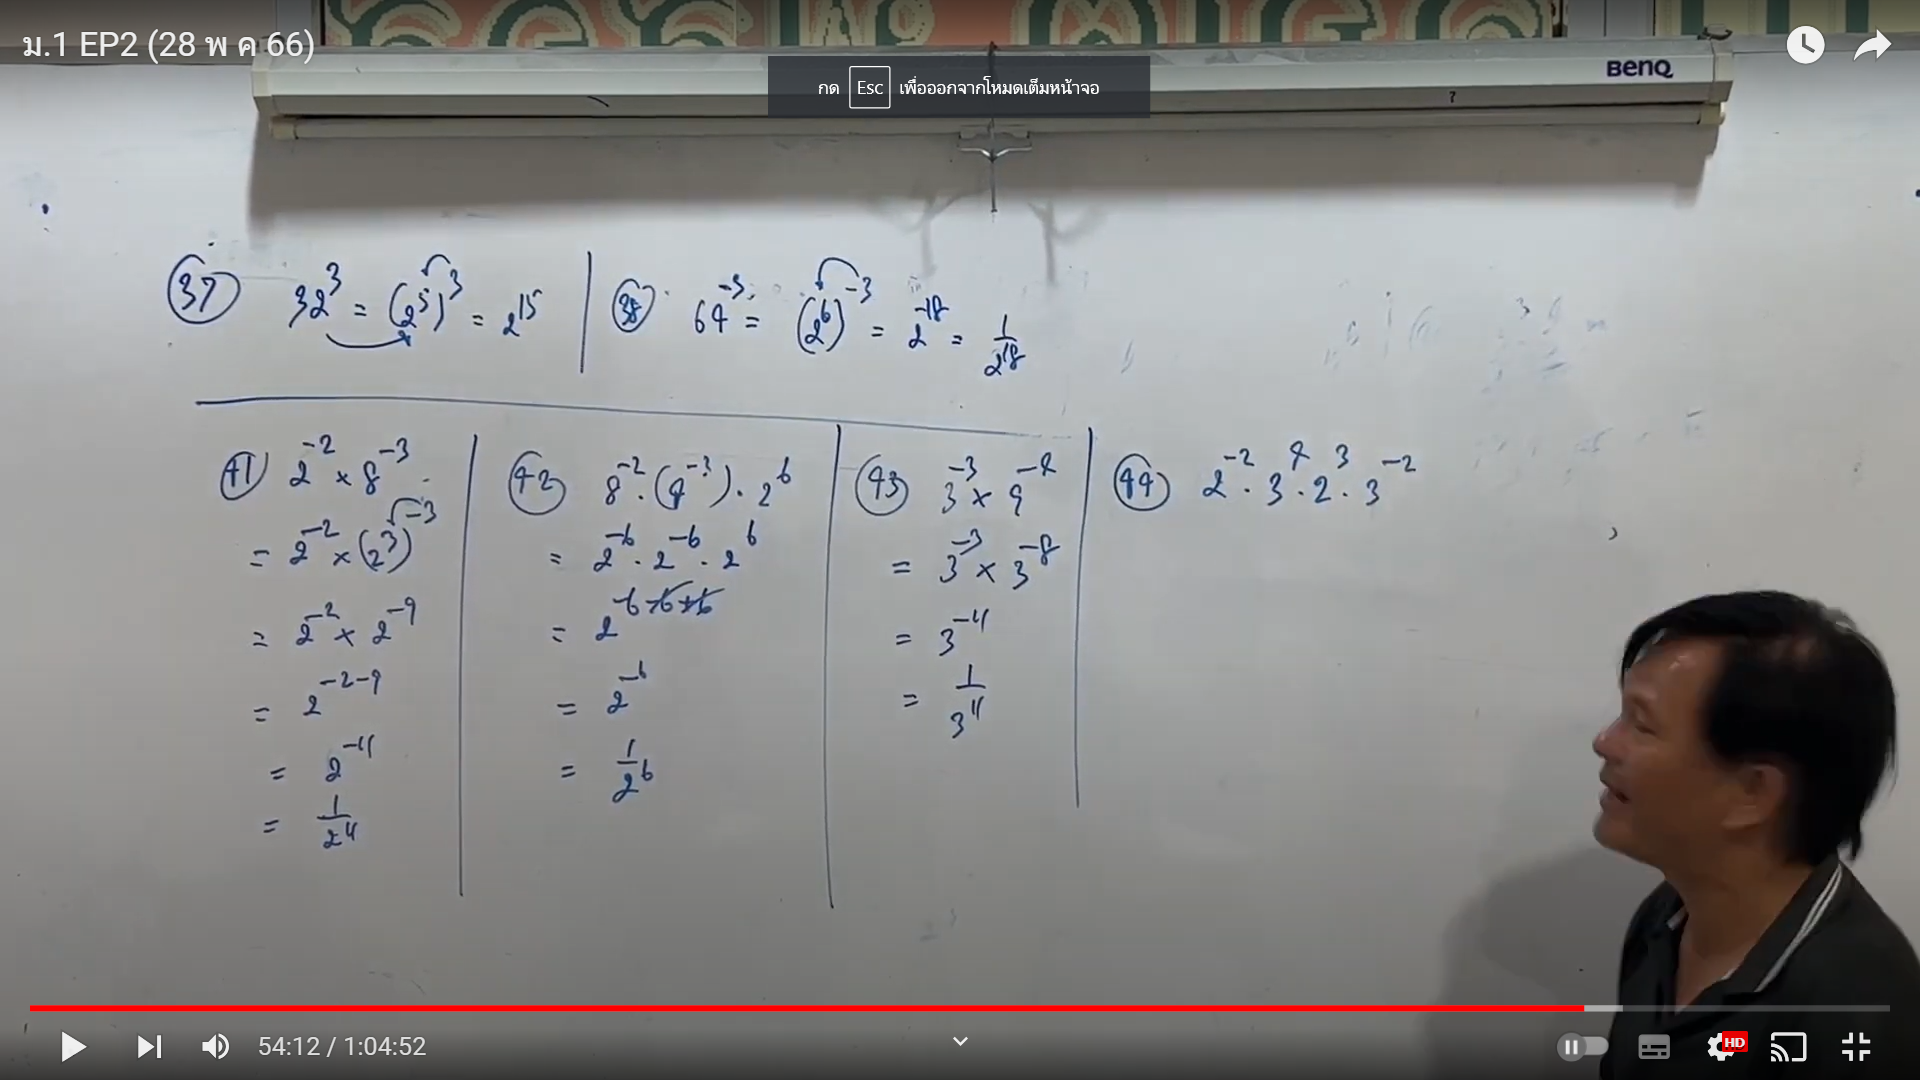 ม.1 EP2 (28 พ ค 66)
กด Esc เพื่อออกจากโหมดเต็มหน้าจอ
BenQ
37 32^3 = (2^5)^3 = 2^15
38 64^-3 = (2^6)^-3 = 2^-18 = 1/2^18
41 2^-2 × 8^-3
= 2^-2 × (2^3)^-3
= 2^-2 × 2^-9
= 2^-2-9
= 2^-11
= 1/2^11
42 8^-2 · (4^-3) · 2^6
= 2^-6 · 2^-6 · 2^6
= 2^-6-6+6
= 2^-6
= 1/2^6
43 3^-3 × 9^-4
= 3^-3 × 3^-8
= 3^-11
= 1/3^11
44 2^-2 · 3^4 · 2^3 · 3^-2
54:12 / 1:04:52
HD